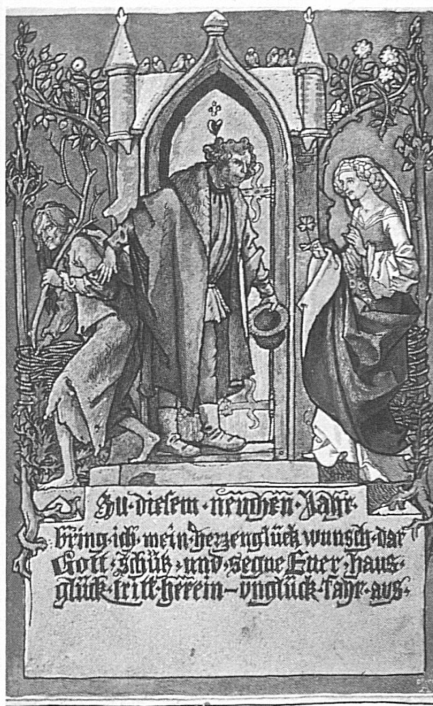 Zu · diesem · neuyen · Jahr ·
bring · ich · mein · herzenglück · wunsch · dar
Gott · schütz · und · segne Euer · haus ·
glück · tritt · herein – vnglück · fahr · aus ·